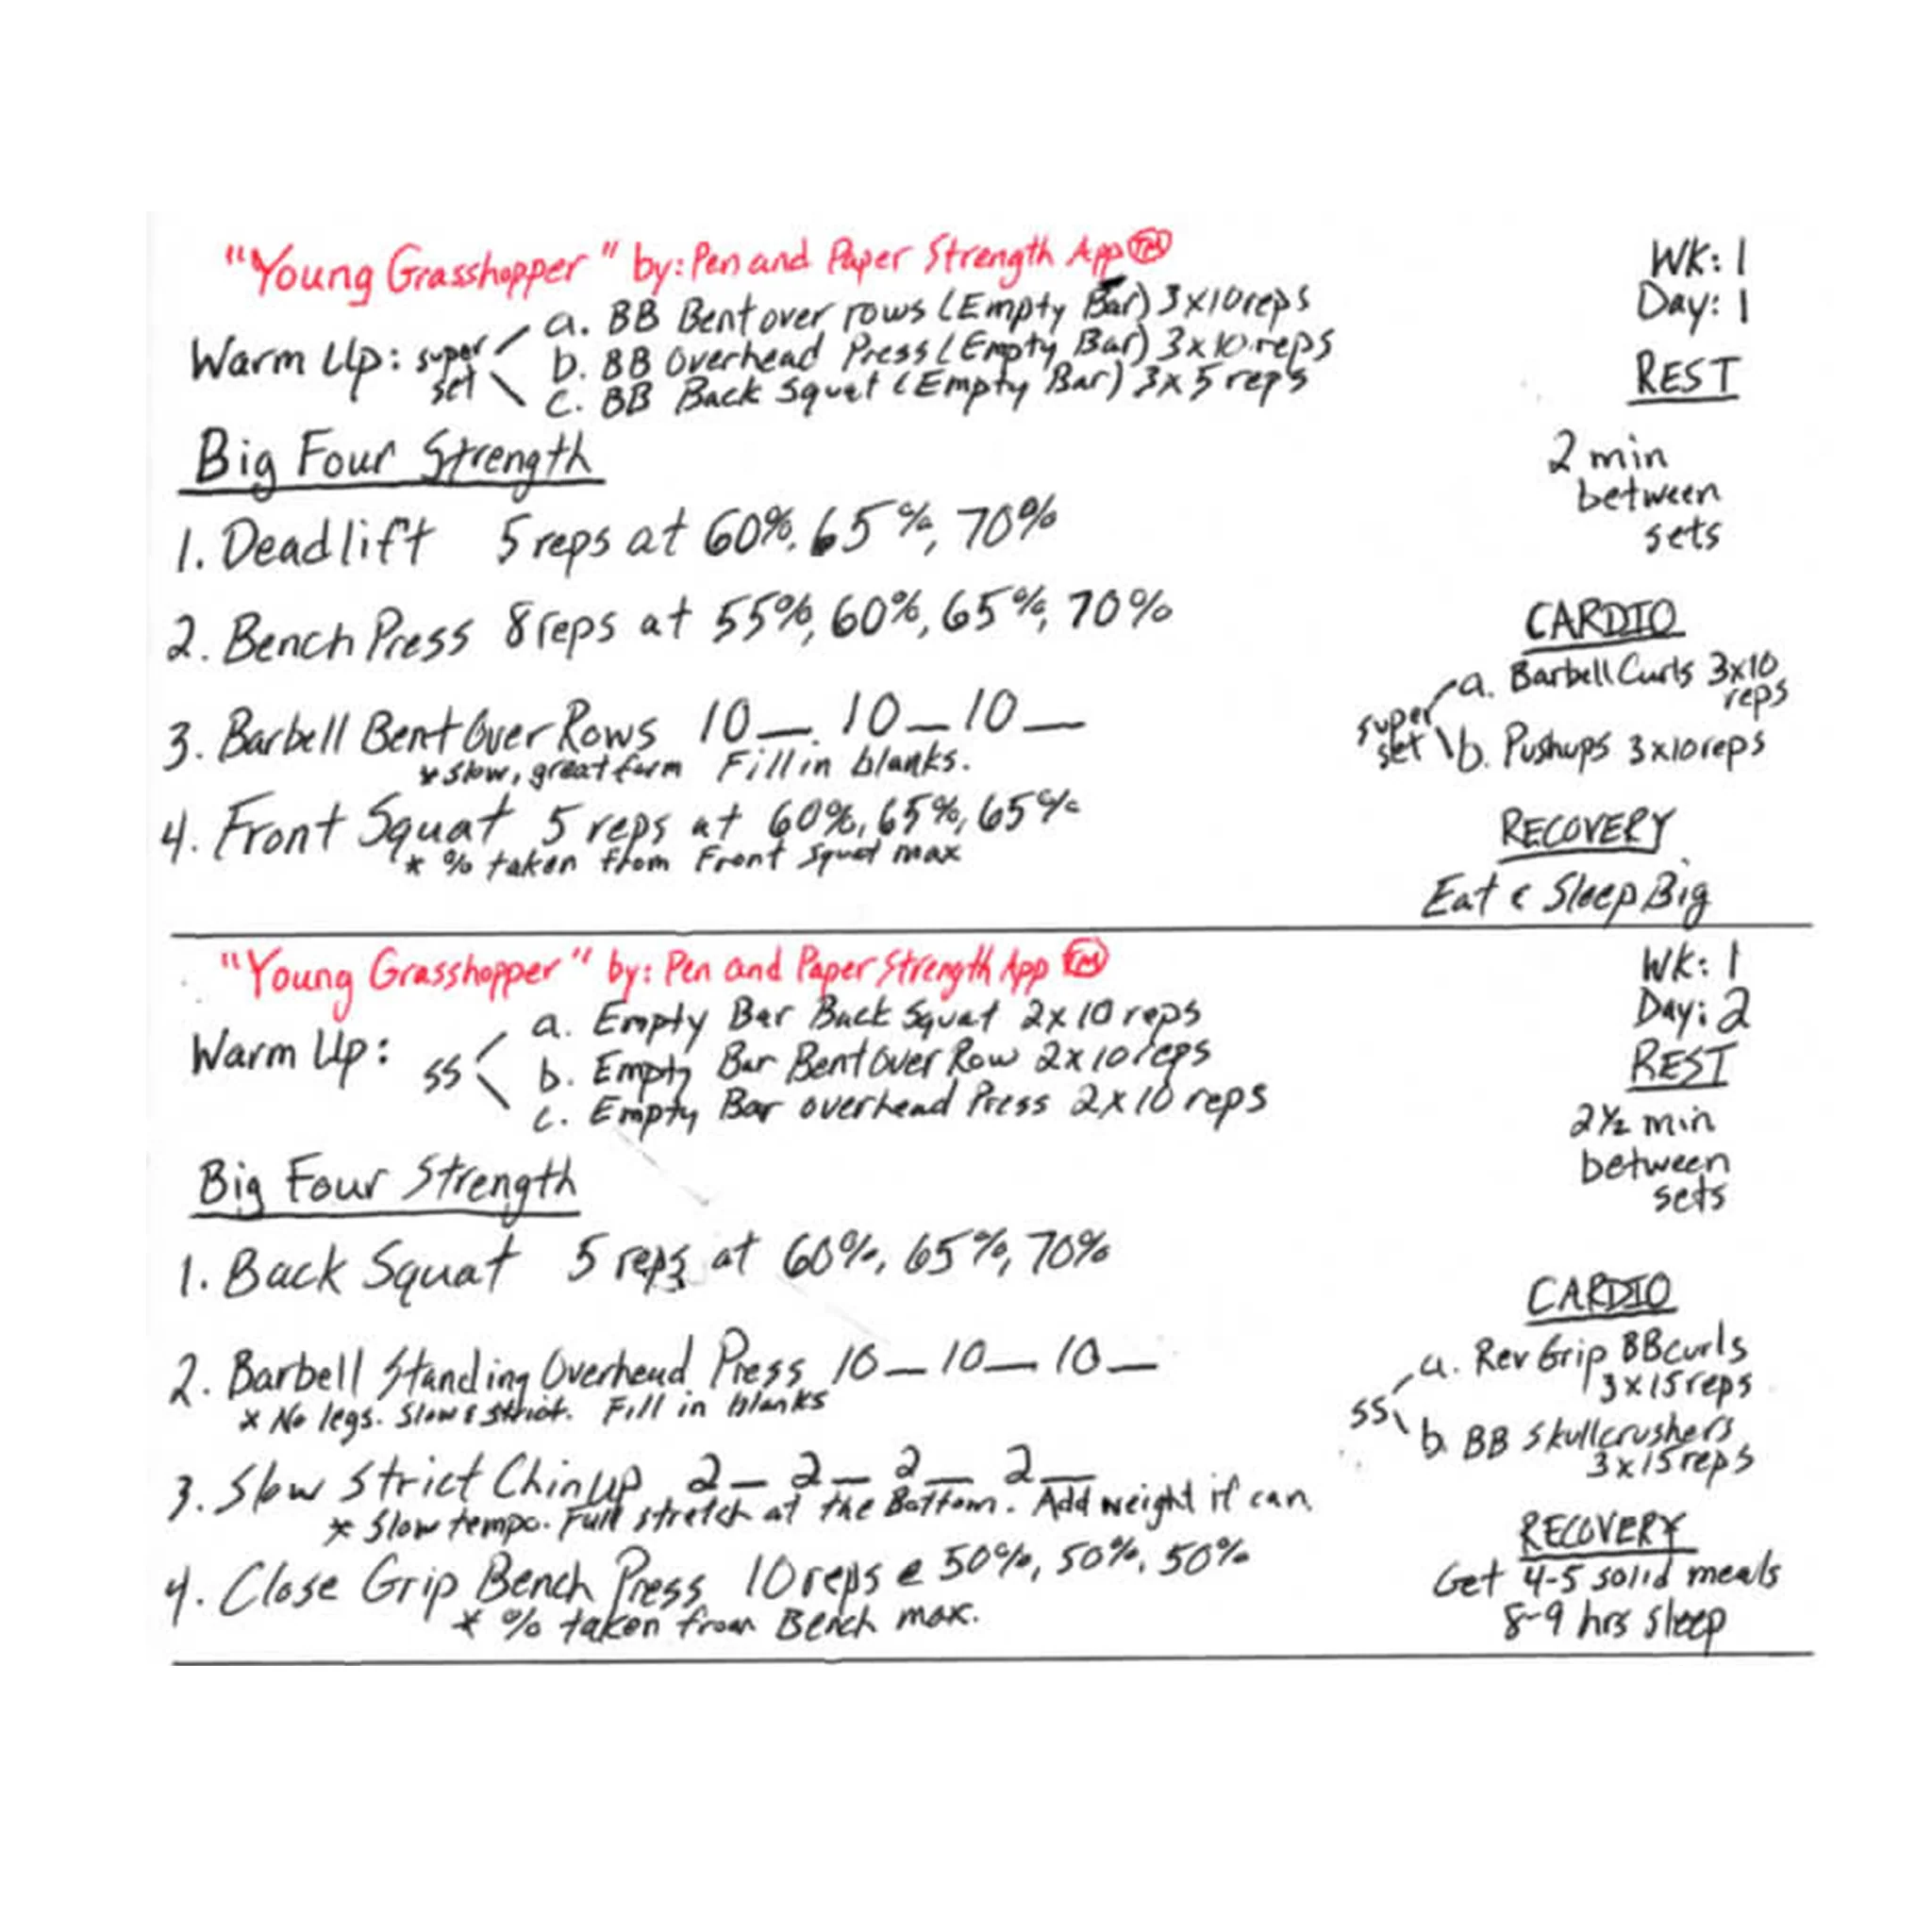 "Young Grasshopper" by: Pen and Paper Strength App TM
WK: 1
Day: 1
Warm Up: super set
a. BB Bent over rows (Empty Bar) 3x10 reps
b. BB Overhead Press (Empty Bar) 3x10 reps
c. BB Back Squat (Empty Bar) 3x5 reps
Big Four Strength
1. Deadlift 5 reps at 60%, 65%, 70%
2. Bench Press 8 reps at 55%, 60%, 65%, 70%
3. Barbell Bent Over Rows 10__. 10__ 10__
* Slow, great form Fill in blanks.
4. Front Squat 5 reps at 60%, 65%, 65%
* % taken from Front Squat max
REST
2 min
between
sets
CARDIO
super set
a. Barbell Curls 3x10
reps
b. Pushups 3x10 reps
RECOVERY
Eat & Sleep Big
"Young Grasshopper" by: Pen and Paper Strength App TM
WK: 1
Day: 2
Warm Up: SS
a. Empty Bar Back Squat 2x10 reps
b. Empty Bar Bent Over Row 2x10 reps
c. Empty Bar overhead Press 2x10 reps
Big Four Strength
1. Back Squat 5 reps at 60%, 65%, 70%
2. Barbell Standing Overhead Press 10__ 10__ 10__
* No legs. Slow & strict. Fill in blanks
3. Slow Strict Chinup 2__ 2__ 2__ 2__
* Slow tempo. Full stretch at the Bottom. Add weight if can.
4. Close Grip Bench Press 10 reps @ 50%, 50%, 50%
* % taken from Bench max.
REST
2½ min
between
sets
CARDIO
SS
a. Rev Grip BB curls
3x15 reps
b. BB Skullcrushers
3x15 reps
RECOVERY
Get 4-5 solid meals
8-9 hrs sleep